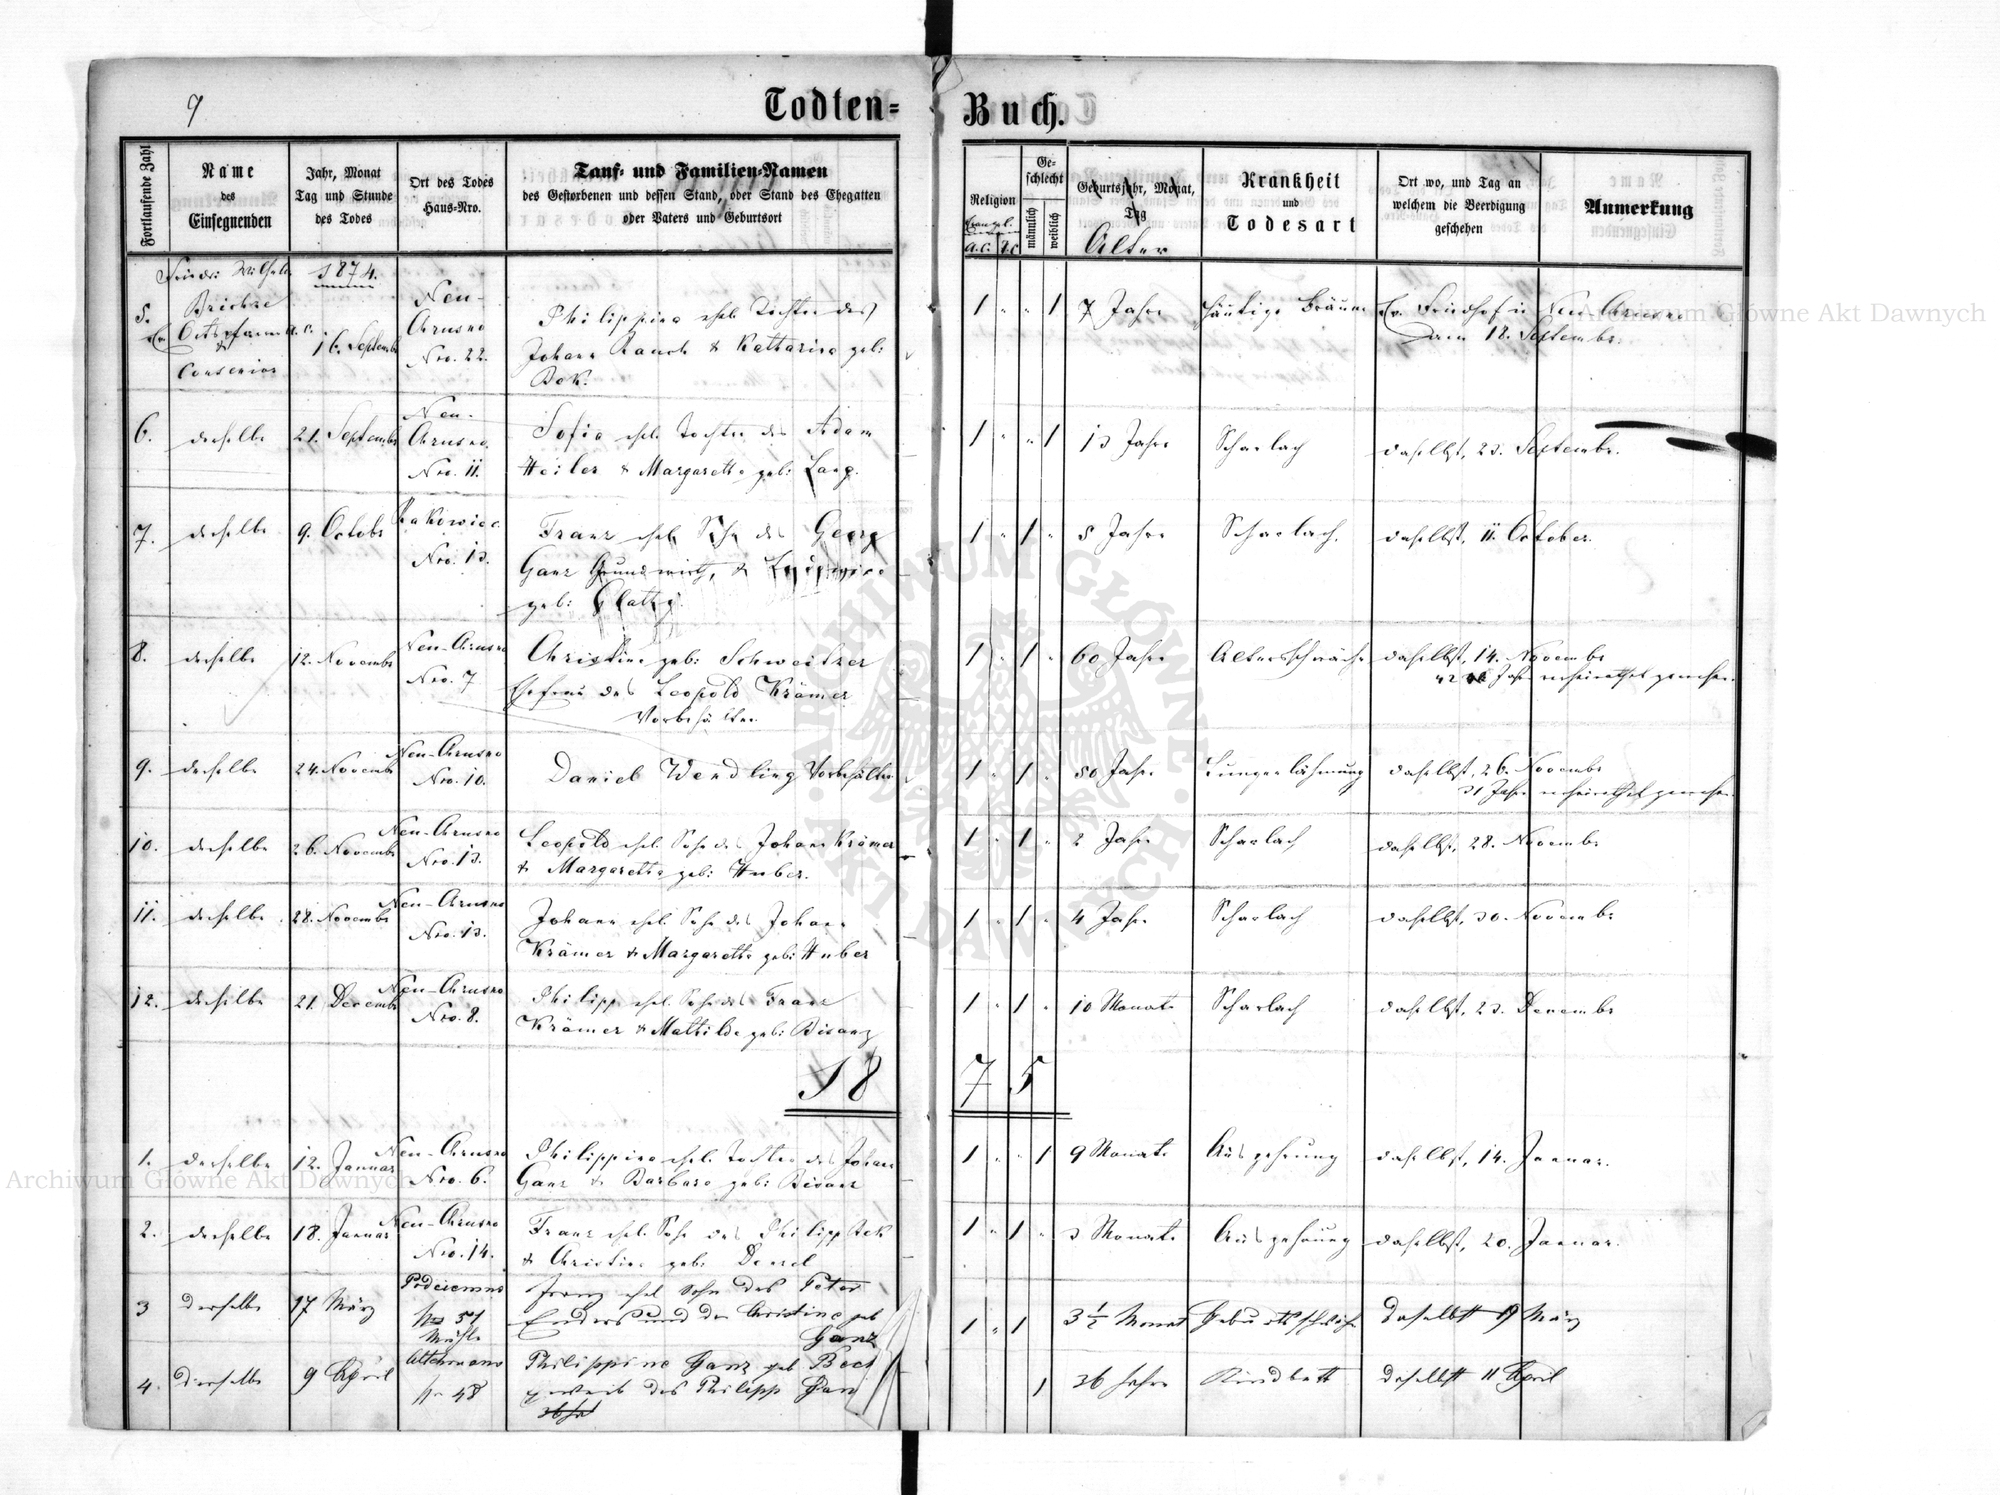 9
Todten-Buch.
Fortlaufende Zahl
Name
des
Einsegnenden
Jahr, Monat
Tag und Stunde
des Todes
Ort des Todes
Haus-Nro.
Tauf- und Familien-Namen
des Gestorbenen und dessen Stand, oder Stand des Ehegatten
oder Vaters und Geburtsort
Religion
Evangel.
A.C. H.C.
Ge-
schlecht
männlich
weiblich
Geburtsjahr, Monat,
Tag
Alter
Krankheit
und
Todesart
Ort wo, und Tag an
welchem die Beerdigung
geschehen
Anmerkung
5.
Wilhelm
Ortspfarrer
Consenior
1874.
16. September
Neu-
Chrusno
Nro. 22.
Philippina ehel. Tochter des
Johann Rauch & Katharina geb:
Bek.
1 " " 1
7 Jahre
häutige Bräune
Ev. Friedhof in Neu-Chrusno
am 18. Septembr.
6.
derselbe
21. September
Neu-
Chrusno
Nro. 11.
Sofia ehel. Tochter des Adam
Heiler & Margaretha geb: Lang.
1 " " 1
13 Jahre
Scharlach
daselbst, 23. Septembr.
7.
derselbe
9. Octobr
Rakowiec
Nro. 13.
Franz ehel. Sohn des Georg
Ganz Grundwirth, &
geb:
1 " 1 "
5 Jahre
Scharlach.
daselbst, 11. October.
8.
derselbe
12. Novembr
Neu-Chrusno
Nro. 7
Christine geb: Schweitzer
Ehefrau des Leopold Krämer
Vorbehälter
1 " 1 "
60 Jahre
Altersschwäche
daselbst, 14. Novembr
42 Jahre verheirathet gewesen.
9.
derselbe
24. Novembr
Neu-Chrusno
Nro. 10.
Daniel Wendling Vorbehälter
1 " 1 "
50 Jahre
Lungenlähmung
daselbst, 26. Novembr
31 Jahre verheirathet gewesen.
10.
derselbe
26. Novembr
Neu-Chrusno
Nro. 13.
Leopold ehel. Sohn des Johann Krämer
& Margaretha geb: Huber.
1 " 1 "
2 Jahre
Scharlach
daselbst, 28. Novembr
11.
derselbe
28. Novembr
Neu-Chrusno
Nro. 13.
Johann ehel. Sohn des Johann
Krämer & Margaretha geb: Huber
1 " 1 "
4 Jahre
Scharlach
daselbst, 30. Novembr
12.
derselbe
21. Decembr
Neu-Chrusno
Nro. 8.
Philipp ehel. Sohn des Franz
Krämer & Mathilde geb: Bisanz
1 " 1 "
10 Monate
Scharlach
daselbst, 23. Decembr
18
7 5
1.
derselbe
12. Januar
Neu-Chrusno
Nro. 6.
Philippina ehel. Tochter des Johann
Ganz & Barbara geb: Bisanz
1 " " 1
9 Monate
Auszehrung
daselbst, 14. Januar.
2.
derselbe
18. Januar
Neu-Chrusno
Nro. 14.
Franz ehel. Sohn des Philipp Bek
& Christine geb: Denzel
1 " 1 "
3 Monate
Auszehrung
daselbst, 20. Januar.
3
derselbe
17 März
Podciemno
No 51
Mühle
Franz ehel Sohn des Peter
Enders und der Christine geb
Ganz
1 " 1
3 1/2 Monat
Geburtsschwäche
daselbst 19 März
4.
derselbe
9 April
Altchrusno
No 48
Philippine Ganz geb Beck
Eheweib des Philipp Ganz
36 Jahr
1
36 Jahre
Kindbett
daselbst 11 April
ARCHIWUM GŁÓWNE AKT DAWNYCH
Archiwum Główne Akt Dawnych
Archiwum Główne Akt Dawnych